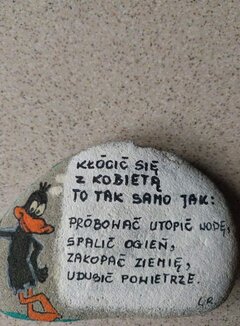 KŁÓCIĆ SIĘ
Z KOBIETĄ
TO TAK SAMO JAK:
PRÓBOWAĆ UTOPIĆ WODĘ,
SPALIĆ OGIEŃ,
ZAKOPAĆ ZIEMIĘ,
UDUSIĆ POWIETRZE.